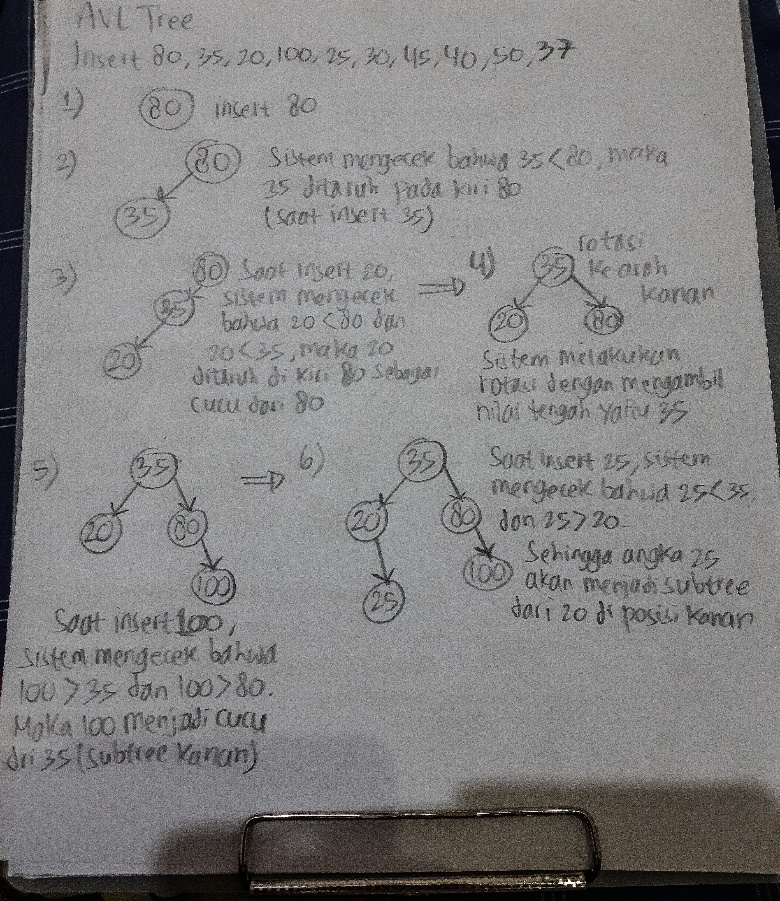 AVL Tree
Insert 80, 35, 20, 100, 25, 30, 45, 40, 50, 37
1)
80
insert 80
2)
80
35
Sistem mengecek bahwa 35 < 80, maka
35 ditaruh pada kiri 80
(saat insert 35)
3)
80
35
20
Saat insert 20,
sistem mengecek
bahwa 20 < 80 dan
20 < 35, maka 20
ditaruh di kiri 80 sebagai
cucu dari 80
⇒
4)
35
20
80
rotasi
ke arah
kanan
Sistem melakukan
rotasi dengan mengambil
nilai tengah yaitu 35
5)
35
20
80
100
Saat insert 100,
Sistem mengecek bahwa
100 > 35 dan 100 > 80.
Maka 100 menjadi cucu
dri 35 (subtree kanan)
⇒
6)
35
20
80
25
100
Saat insert 25, sistem
mengecek bahwa 25 < 35
dan 25 > 20.
Sehingga angka 25
akan menjadi subtree
dari 20 di posisi kanan